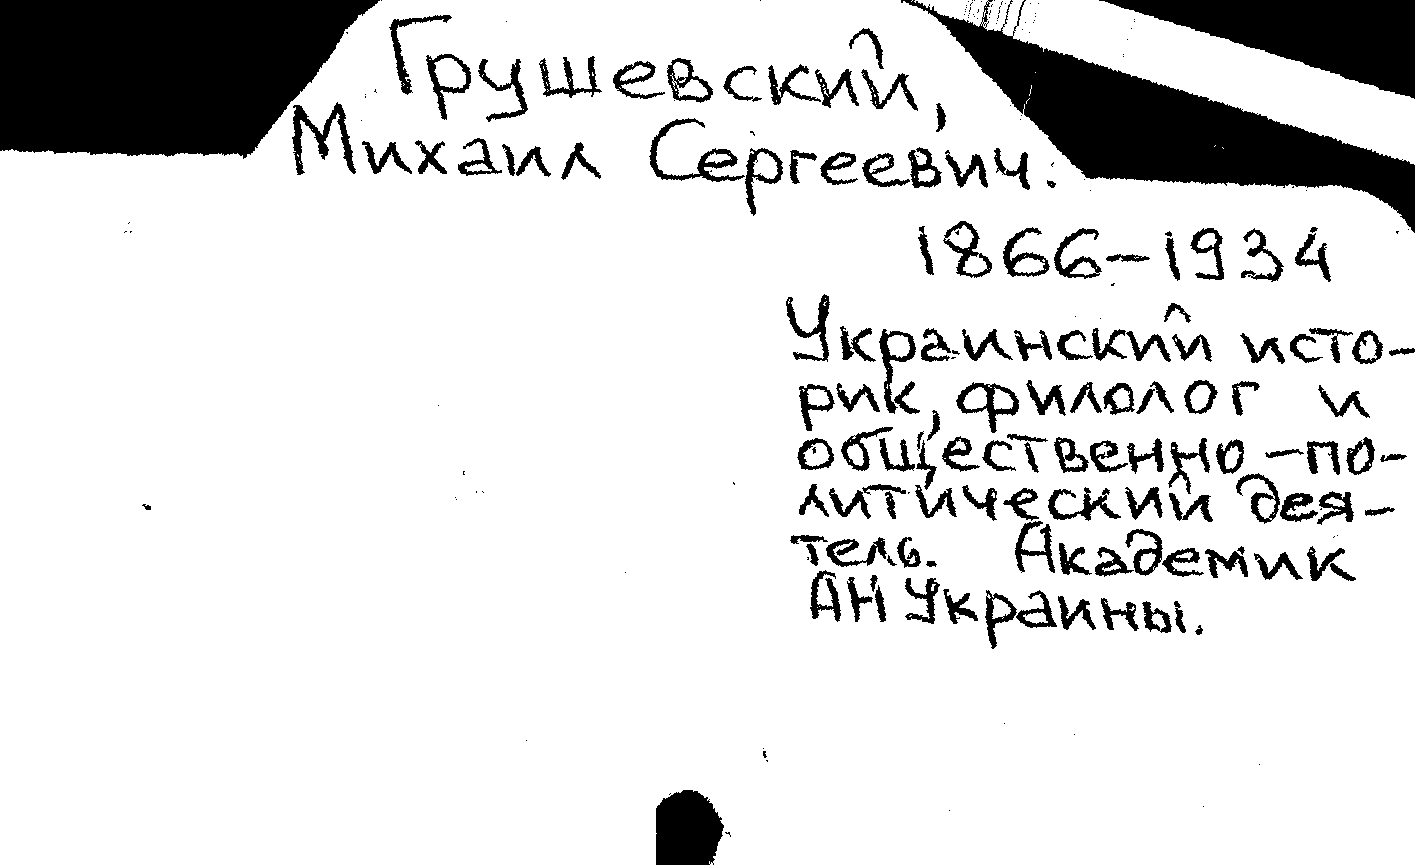 Грушевский,
Михаил Сергеевич.
1866-1934
Украинский исто-
рик, филолог и
общественно-по-
литический дея-
тель. Академик
АН Украины.